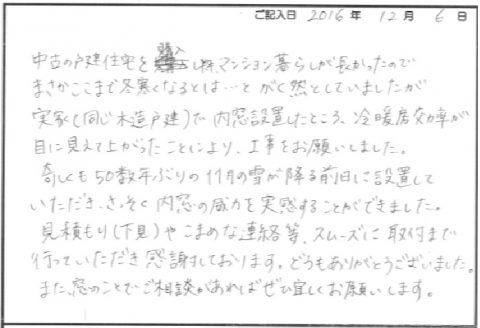 ご記入日 2016年 12月 6日
中古の戸建住宅を購入し、マンション暮らしが長かったので
まさかここまで冬寒くなるとは…とがく然としていましたが
実家(同じ木造戸建)で内窓設置したところ、冷暖房効率が
目に見えて上がったことにより、工事をお願いしました。
奇しくも50数年ぶりの11月の雪が降る前日に設置して
いただき、さっそく内窓の威力を実感することができました。
見積もり(下見)やこまめな連絡等、スムーズに取付まで
行っていただき感謝しております。どうもありがとうございました。
また、窓のことでご相談があればぜひ宜しくお願いします。